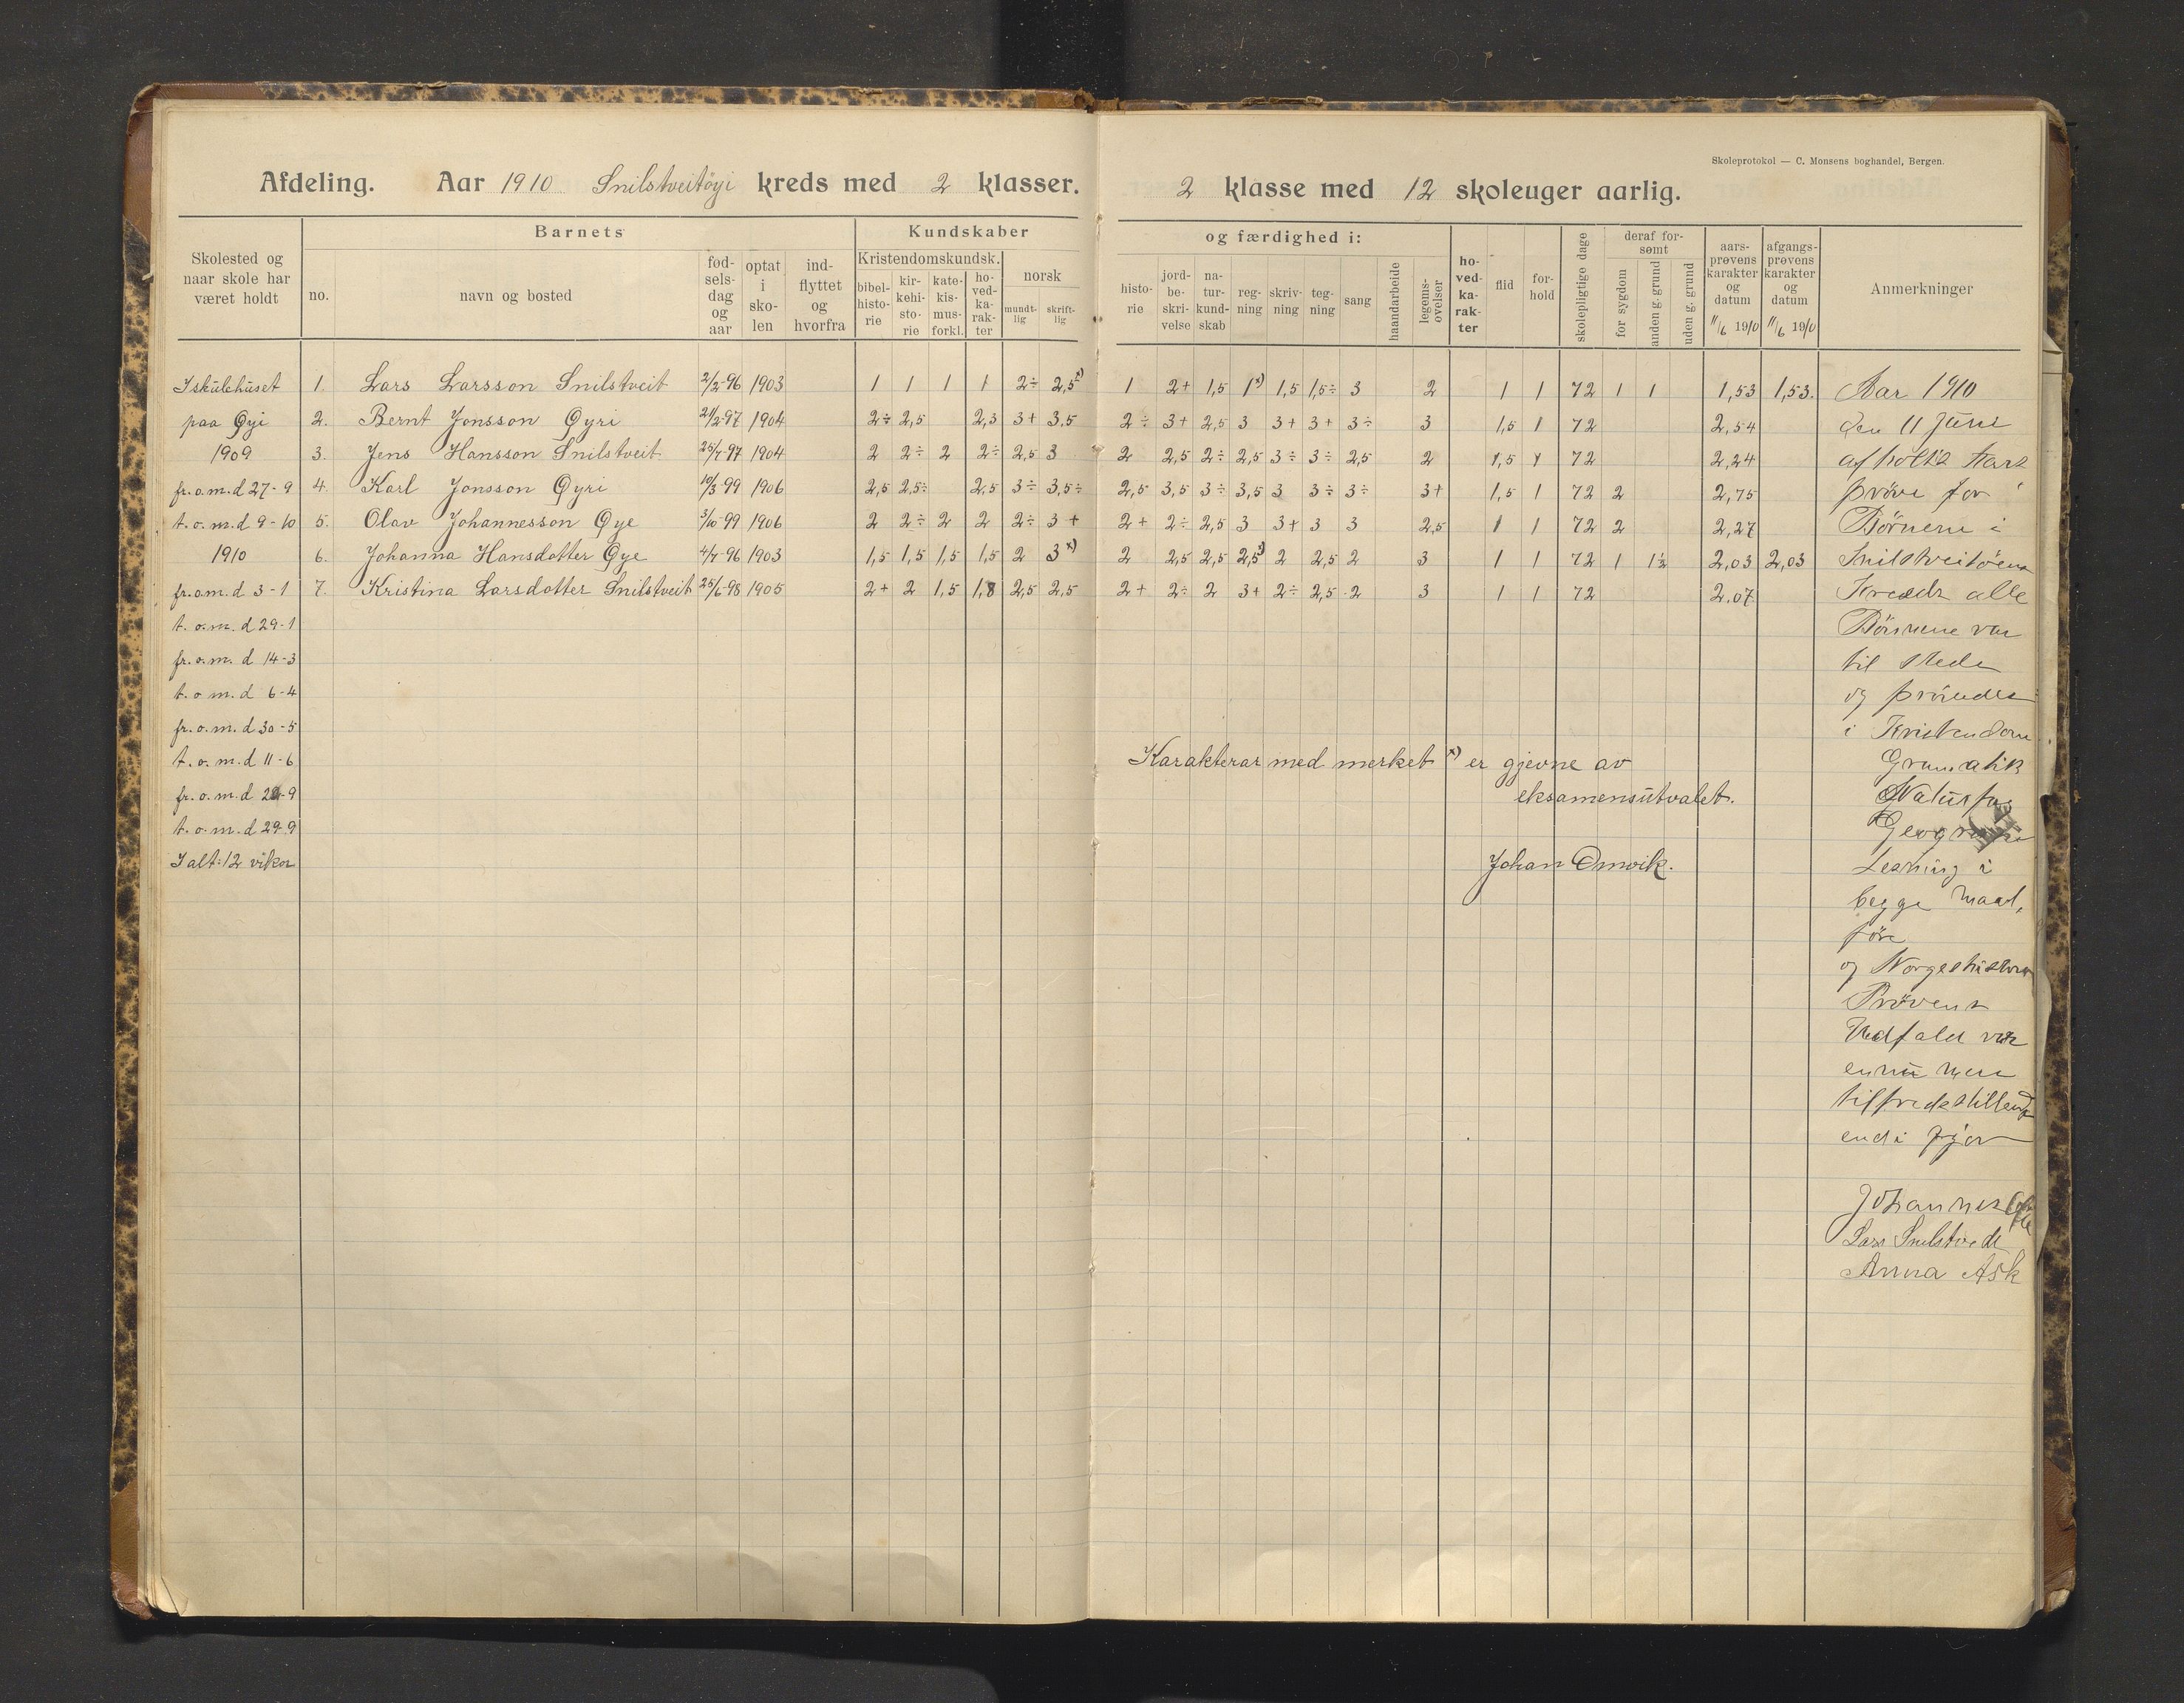 Skoleprotokol — C. Monsens boghandel, Bergen.
Afdeling. Aar 1910 Snilstveitøyi kreds med 2 klasser.
2 klasse med 12 skoleuger aarlig.
Skolested og naar skole har været holdt
Barnets
no.
navn og bosted
fød-sels-dag og aar
optat i sko-len
ind-flyttet og hvorfra
Kundskaber
Kristendomskundsk.
bibel-histo-rie
kir-kehi-sto-rie
kate-kis-mus-forkl.
ho-ved-ka-rak-ter
norsk
mundt-lig
skrift-lig
og færdighed i:
histo-rie
jord-be-skri-velse
na-tur-kund-skab
reg-ning
skriv-ning
teg-ning
sang
haandarbeide
legems-øvelser
ho-ved-ka-rak-ter
flid
for-hold
skolepligtige dage
deraf for-sømt
for sygdom
anden g. grund
uden g. grund
aars-prøvens karakter og datum 11/6 1910
afgangs-prøvens karakter og datum 11/6 1910
Anmerkninger
I skulehuset 1. Lars Larsson Snilstveit 2/2-96 1903 1 1 1 1 2÷ 2,5x) 1 2+ 1,5 1x) 1,5 1,5÷ 3 2 1 1 72 1 1 1,53 1,53. Aar 1910
paa Øyi 2. Bernt Jonsson Øyri 21/2-97 1904 2÷ 2,5 2,3 3+ 3,5 2÷ 3+ 2,5 3 3+ 3+ 3÷ 3 1,5 1 72 2,54 den 11 Juni
1909 3. Jens Hansson Snilstveit 25/7-97 1904 2 2÷ 2 2÷ 2,5 3 2 2,5 2÷ 2,5 3÷ 3÷ 2,5 2 1,5 1 72 2,24
fr.o.m.d 27-9 4. Karl Jonsson Øyri 10/3-99 1906 2,5 2,5÷ 2,5 3÷ 3,5÷ 2,5 3,5 3÷ 3,5 3 3÷ 3÷ 3+ 1,5 1 72 2 2,75 prøve for
t.o.m.d 9-10 5. Olav Johannesson Øye 3/10-99 1906 2 2÷ 2 2 2÷ 3+ 2+ 2÷ 2,5 3 3+ 3 3 2,5 1 1 72 2 2,27 Børnene i
1910 6. Johanna Hansdotter Øye 4/7-96 1903 1,5 1,5 1,5 1,5 2 3x) 2 2,5 2,5 2,5x) 2 2,5 2 3 1 1 72 1 1½ 2,03 2,03
fr.o.m.d 3-1 7. Kristina Larsdotter Snilstveit 25/6-98 1905 2+ 2 1,5 1,8 2,5 2,5 2+ 2÷ 2 3+ 2÷ 2,5 2 3 1 1 72 2,07 alle
t.o.m.d 29-1 Börnene var
fr.o.m.d 14-3 til stede
t.o.m.d 6-4 og prövedes
fr.o.m.d 30-5 i Kristendom
t.o.m.d 11-6 Karakterar med merket x) er gjevne av Gramatik
fr.o.m.d 29 eksamensutvalet.
t.o.m.d 29-9
I alt: 12 vikor Johan Omvik. Lesning i
begge maal,
og Norgeshistorie
Prövens
Udfald var
ennu mere
tilfredstillende
end i fjor
Johannes Øye
Lars Snilstvedt
Anna Ask